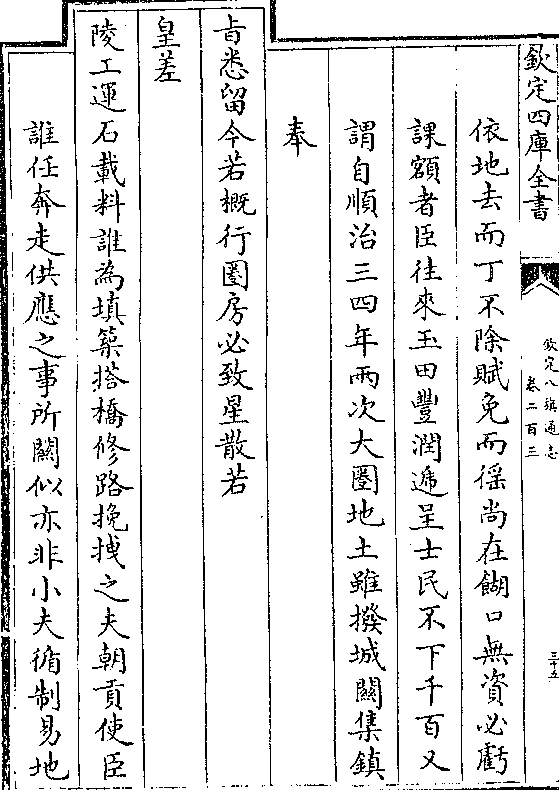 欽定四庫全書
欽定八旗通志
卷二百三
三十五
依地去而丁不除賦免而徭尚在餬口無資必虧
課額者臣往來玉田豐潤遞呈士民不下千百又
謂自順治三四年兩次大圈地土雖撥城關集鎮
奉
旨悉留今若概行圈房必致星散若
皇差
陵工運石載料誰為填築搭橋修路挽拽之夫朝貢使臣
誰任奔走供應之事所關似亦非小夫循制易地